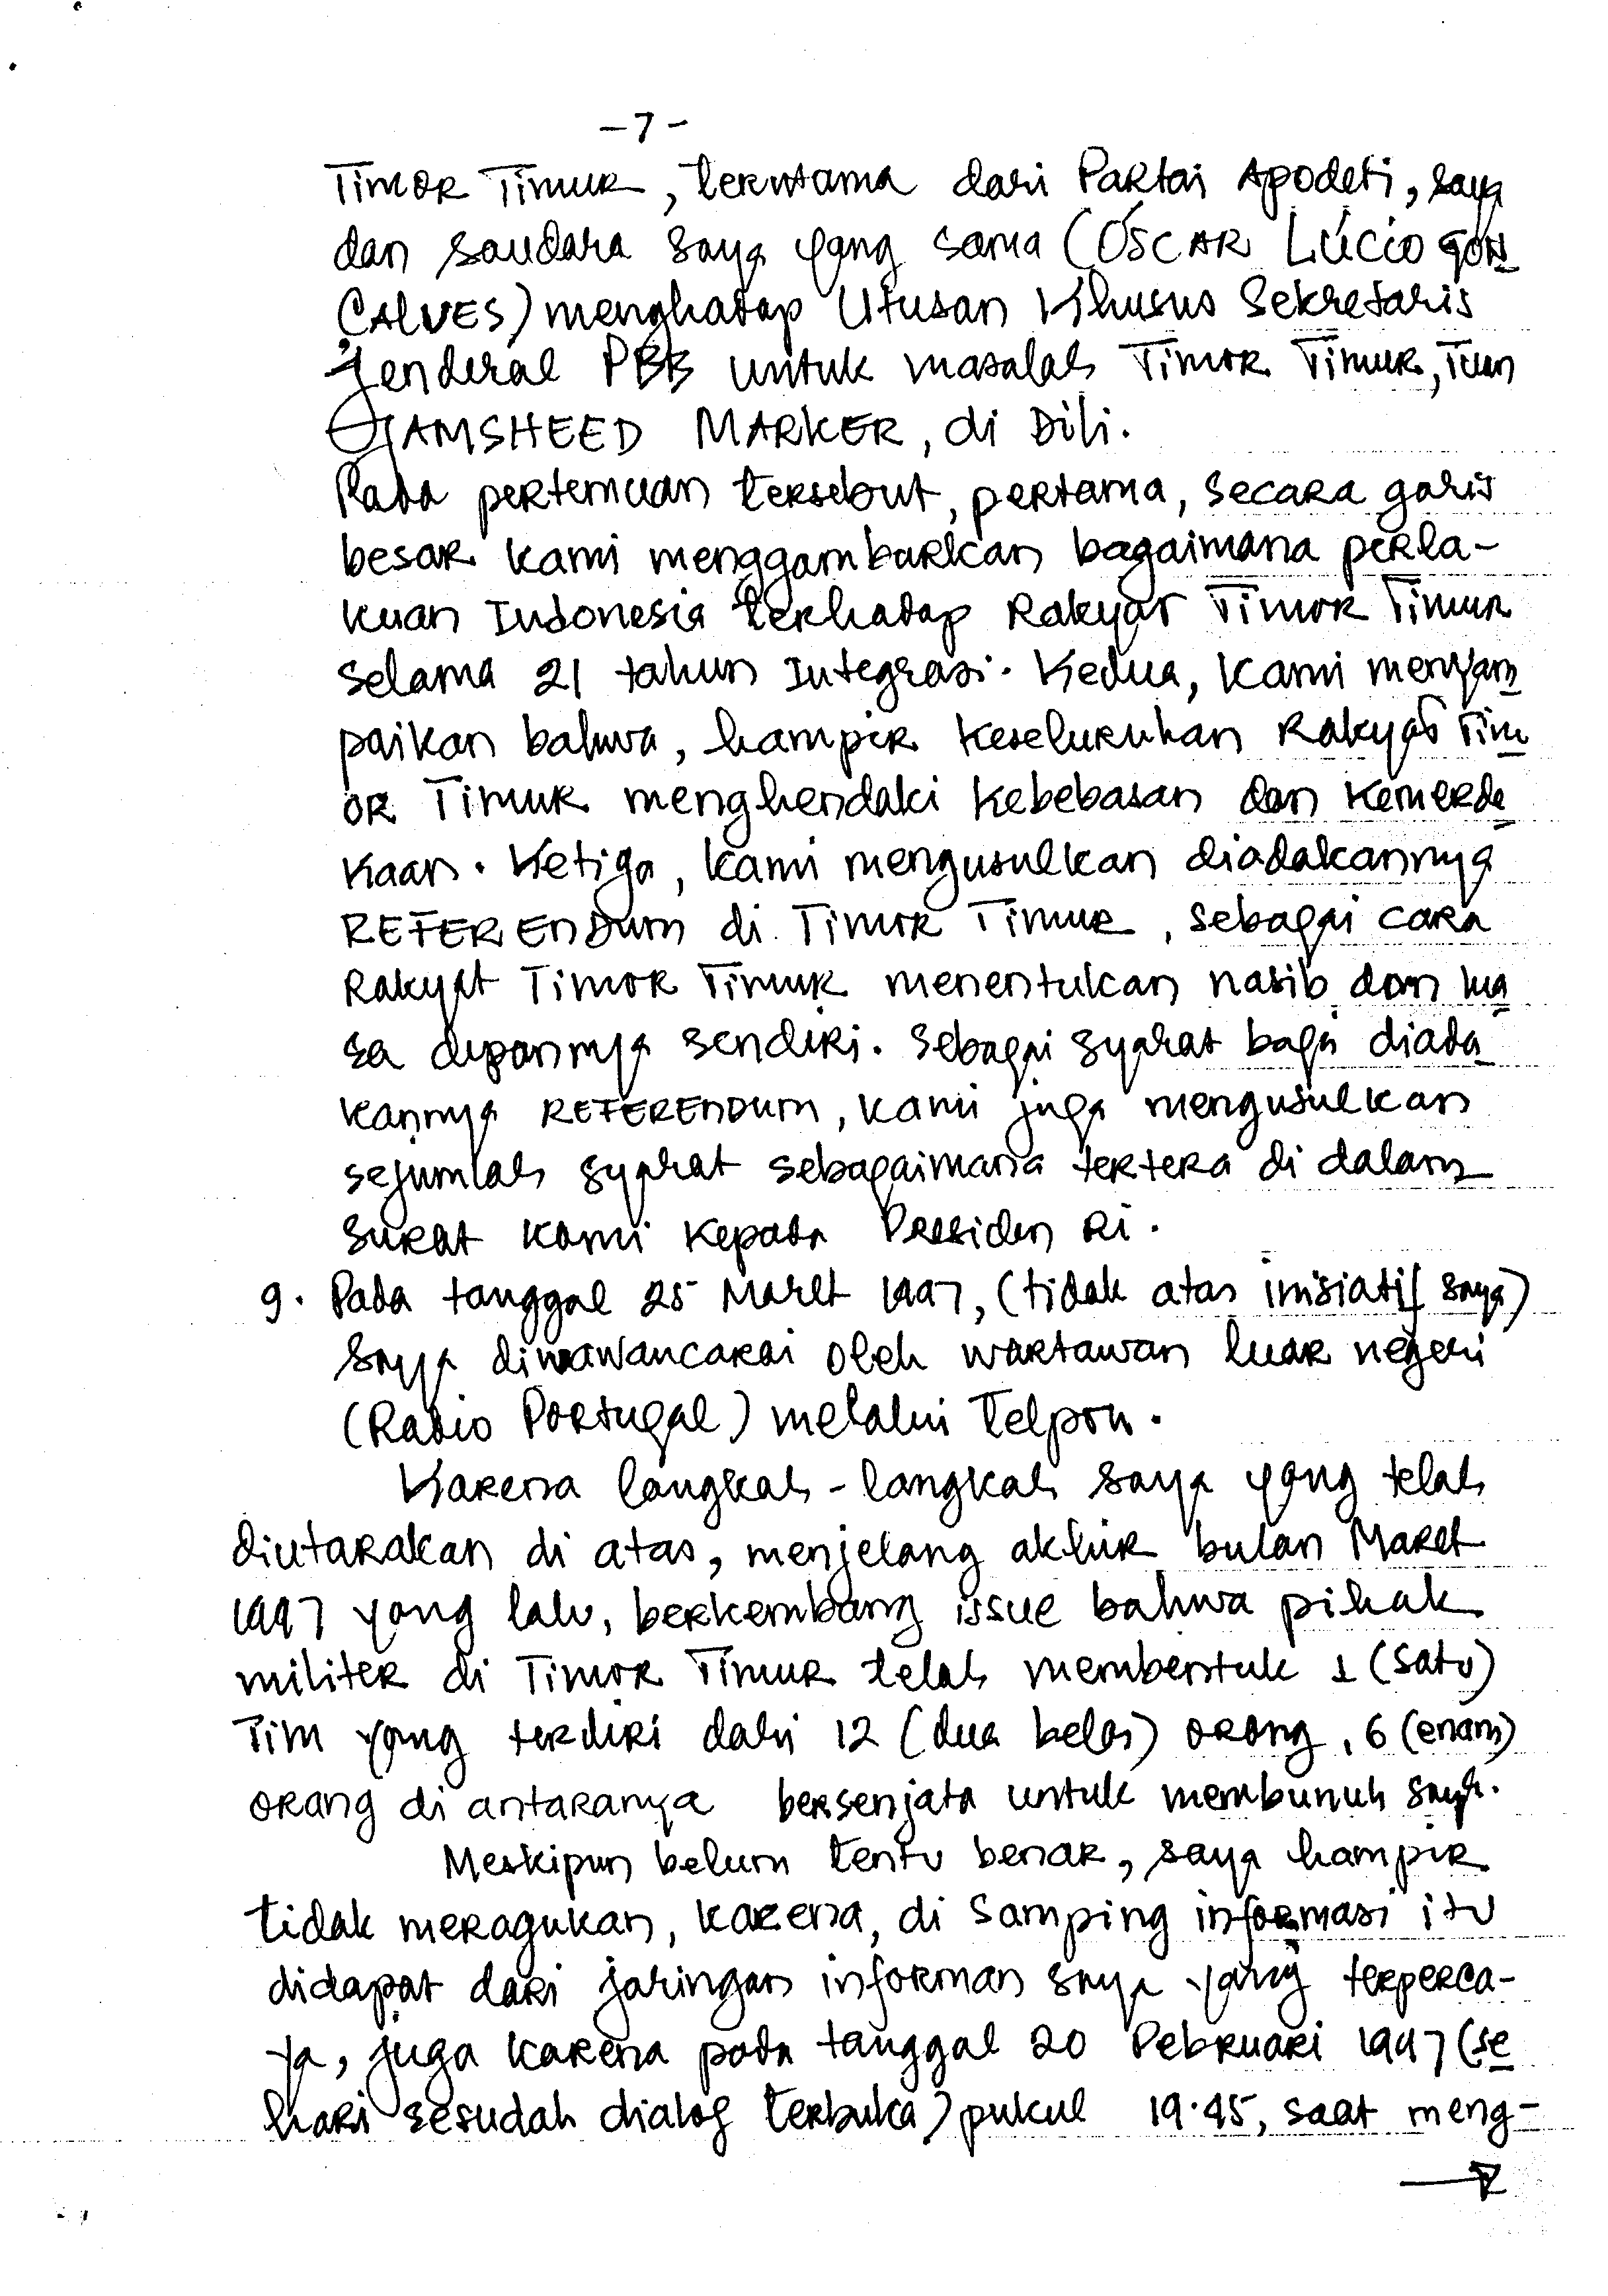 -7-
Timor Timur, terutama dari Partai Apodeti, saya
dan saudara saya yang sama (ÓSCAR LÚCIO GON
ÇALVES) menghadap Utusan Khusus Sekretaris
Jenderal PBB untuk masalah Timor Timur, Tuan
JAMSHEED MARKER, di Dili.
Pada pertemuan tersebut, pertama, secara garis
besar kami menggambarkan bagaimana perla-
kuan Indonesia terhadap Rakyat Timor Timur
selama 21 tahun Integrasi. Kedua, kami menyam
paikan bahwa, hampir keseluruhan Rakyat Tim
or Timur menghendaki kebebasan dan kemerde
kaan. Ketiga, kami mengusulkan diadakannya
REFERENDUM di Timor Timur, sebagai cara
Rakyat Timor Timur menentukan nasib dan ma
sa depannya sendiri. Sebagai syarat bagi diada
kannya REFERENDUM, kami juga mengusulkan
sejumlah syarat sebagaimana tertera di dalam
surat kami kepada Presiden RI.
9. Pada tanggal 25 Maret 1997, (tidak atas inisiatif saya)
saya diwawancarai oleh wartawan luar negeri
(Radio Portugal) melalui telpon.
Karena langkah-langkah saya yang telah
diutarakan di atas, menjelang akhir bulan Maret
1997 yang lalu, berkembang issue bahwa pihak
militer di Timor Timur telah membentuk 1 (satu)
Tim yang terdiri dari 12 (dua belas) orang, 6 (enam)
orang di antaranya bersenjata untuk membunuh saya.
Meskipun belum tentu benar, saya hampir
tidak meragukan, karena, di samping informasi itu
didapat dari jaringan informan saya yang terperca-
ya, juga karena pada tanggal 20 Pebruari 1997 (se
hari sesudah dialog terbuka) pukul 19.45, saat meng-